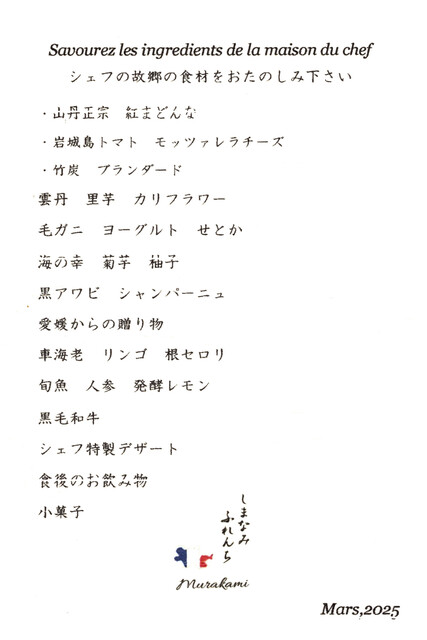 Savourez les ingredients de la maison du chef
シェフの故郷の食材をおたのしみ下さい
・山丹正宗　紅まどんな
・岩城島トマト　モッツァレラチーズ
・竹炭　ブランダード
雲丹　里芋　カリフラワー
毛ガニ　ヨーグルト　せとか
海の幸　菊芋　柚子
黒アワビ　シャンパーニュ
愛媛からの贈り物
車海老　リンゴ　根セロリ
旬魚　人参　発酵レモン
黒毛和牛
シェフ特製デザート
食後のお飲み物
小菓子
しまなみ
ふれんち
Murakami
Mars,2025